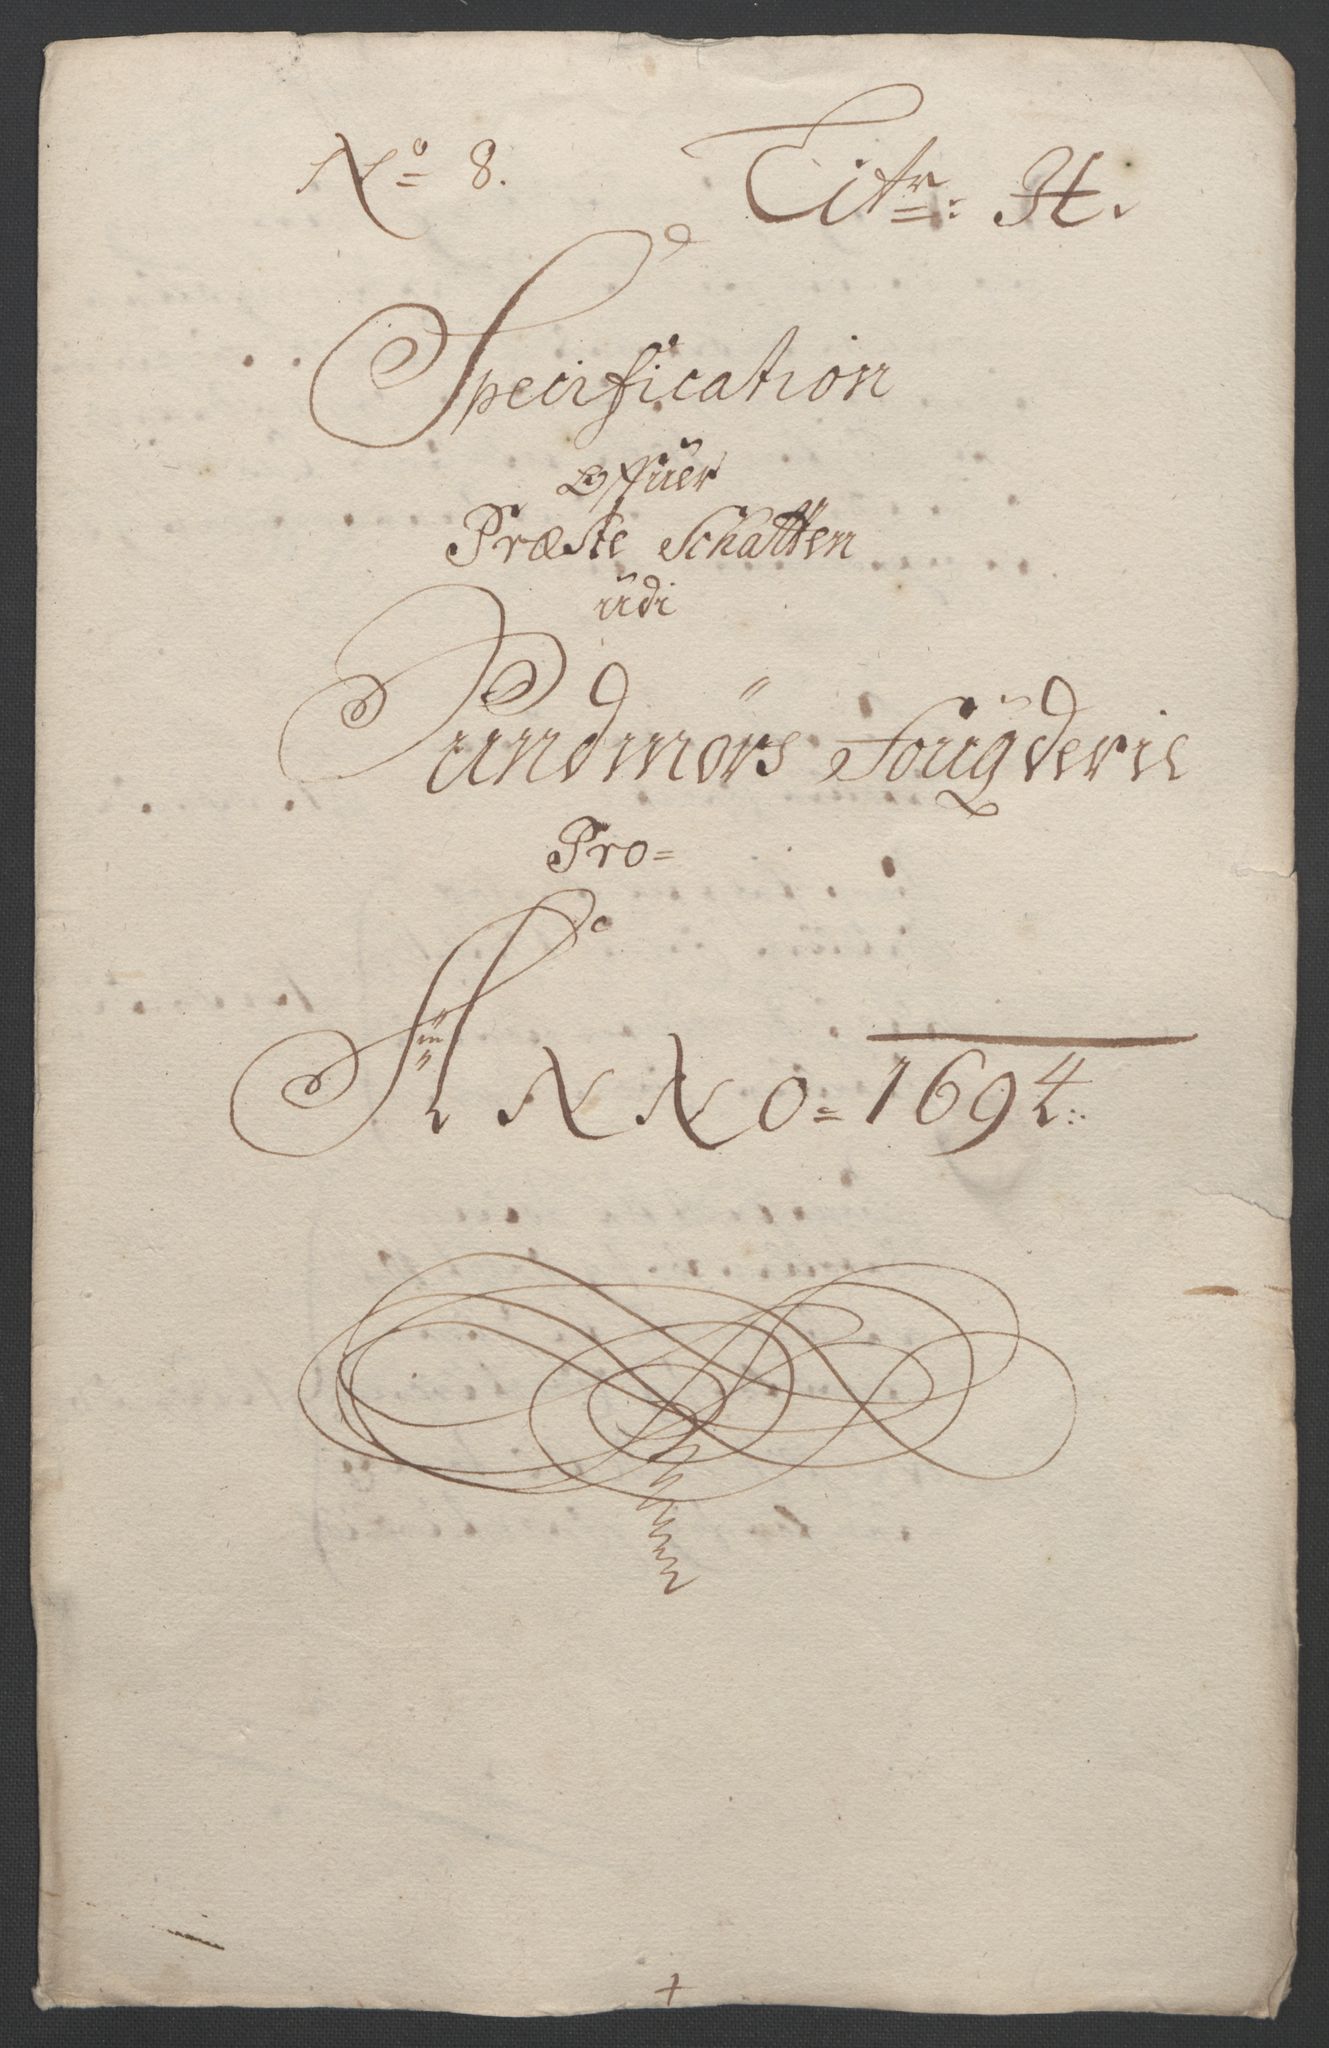 No 8. Litr: H.
Specification
Offuer
Præste Schatten
udi
Sundmørs Fougderie
Pro=
ANNO=1694: